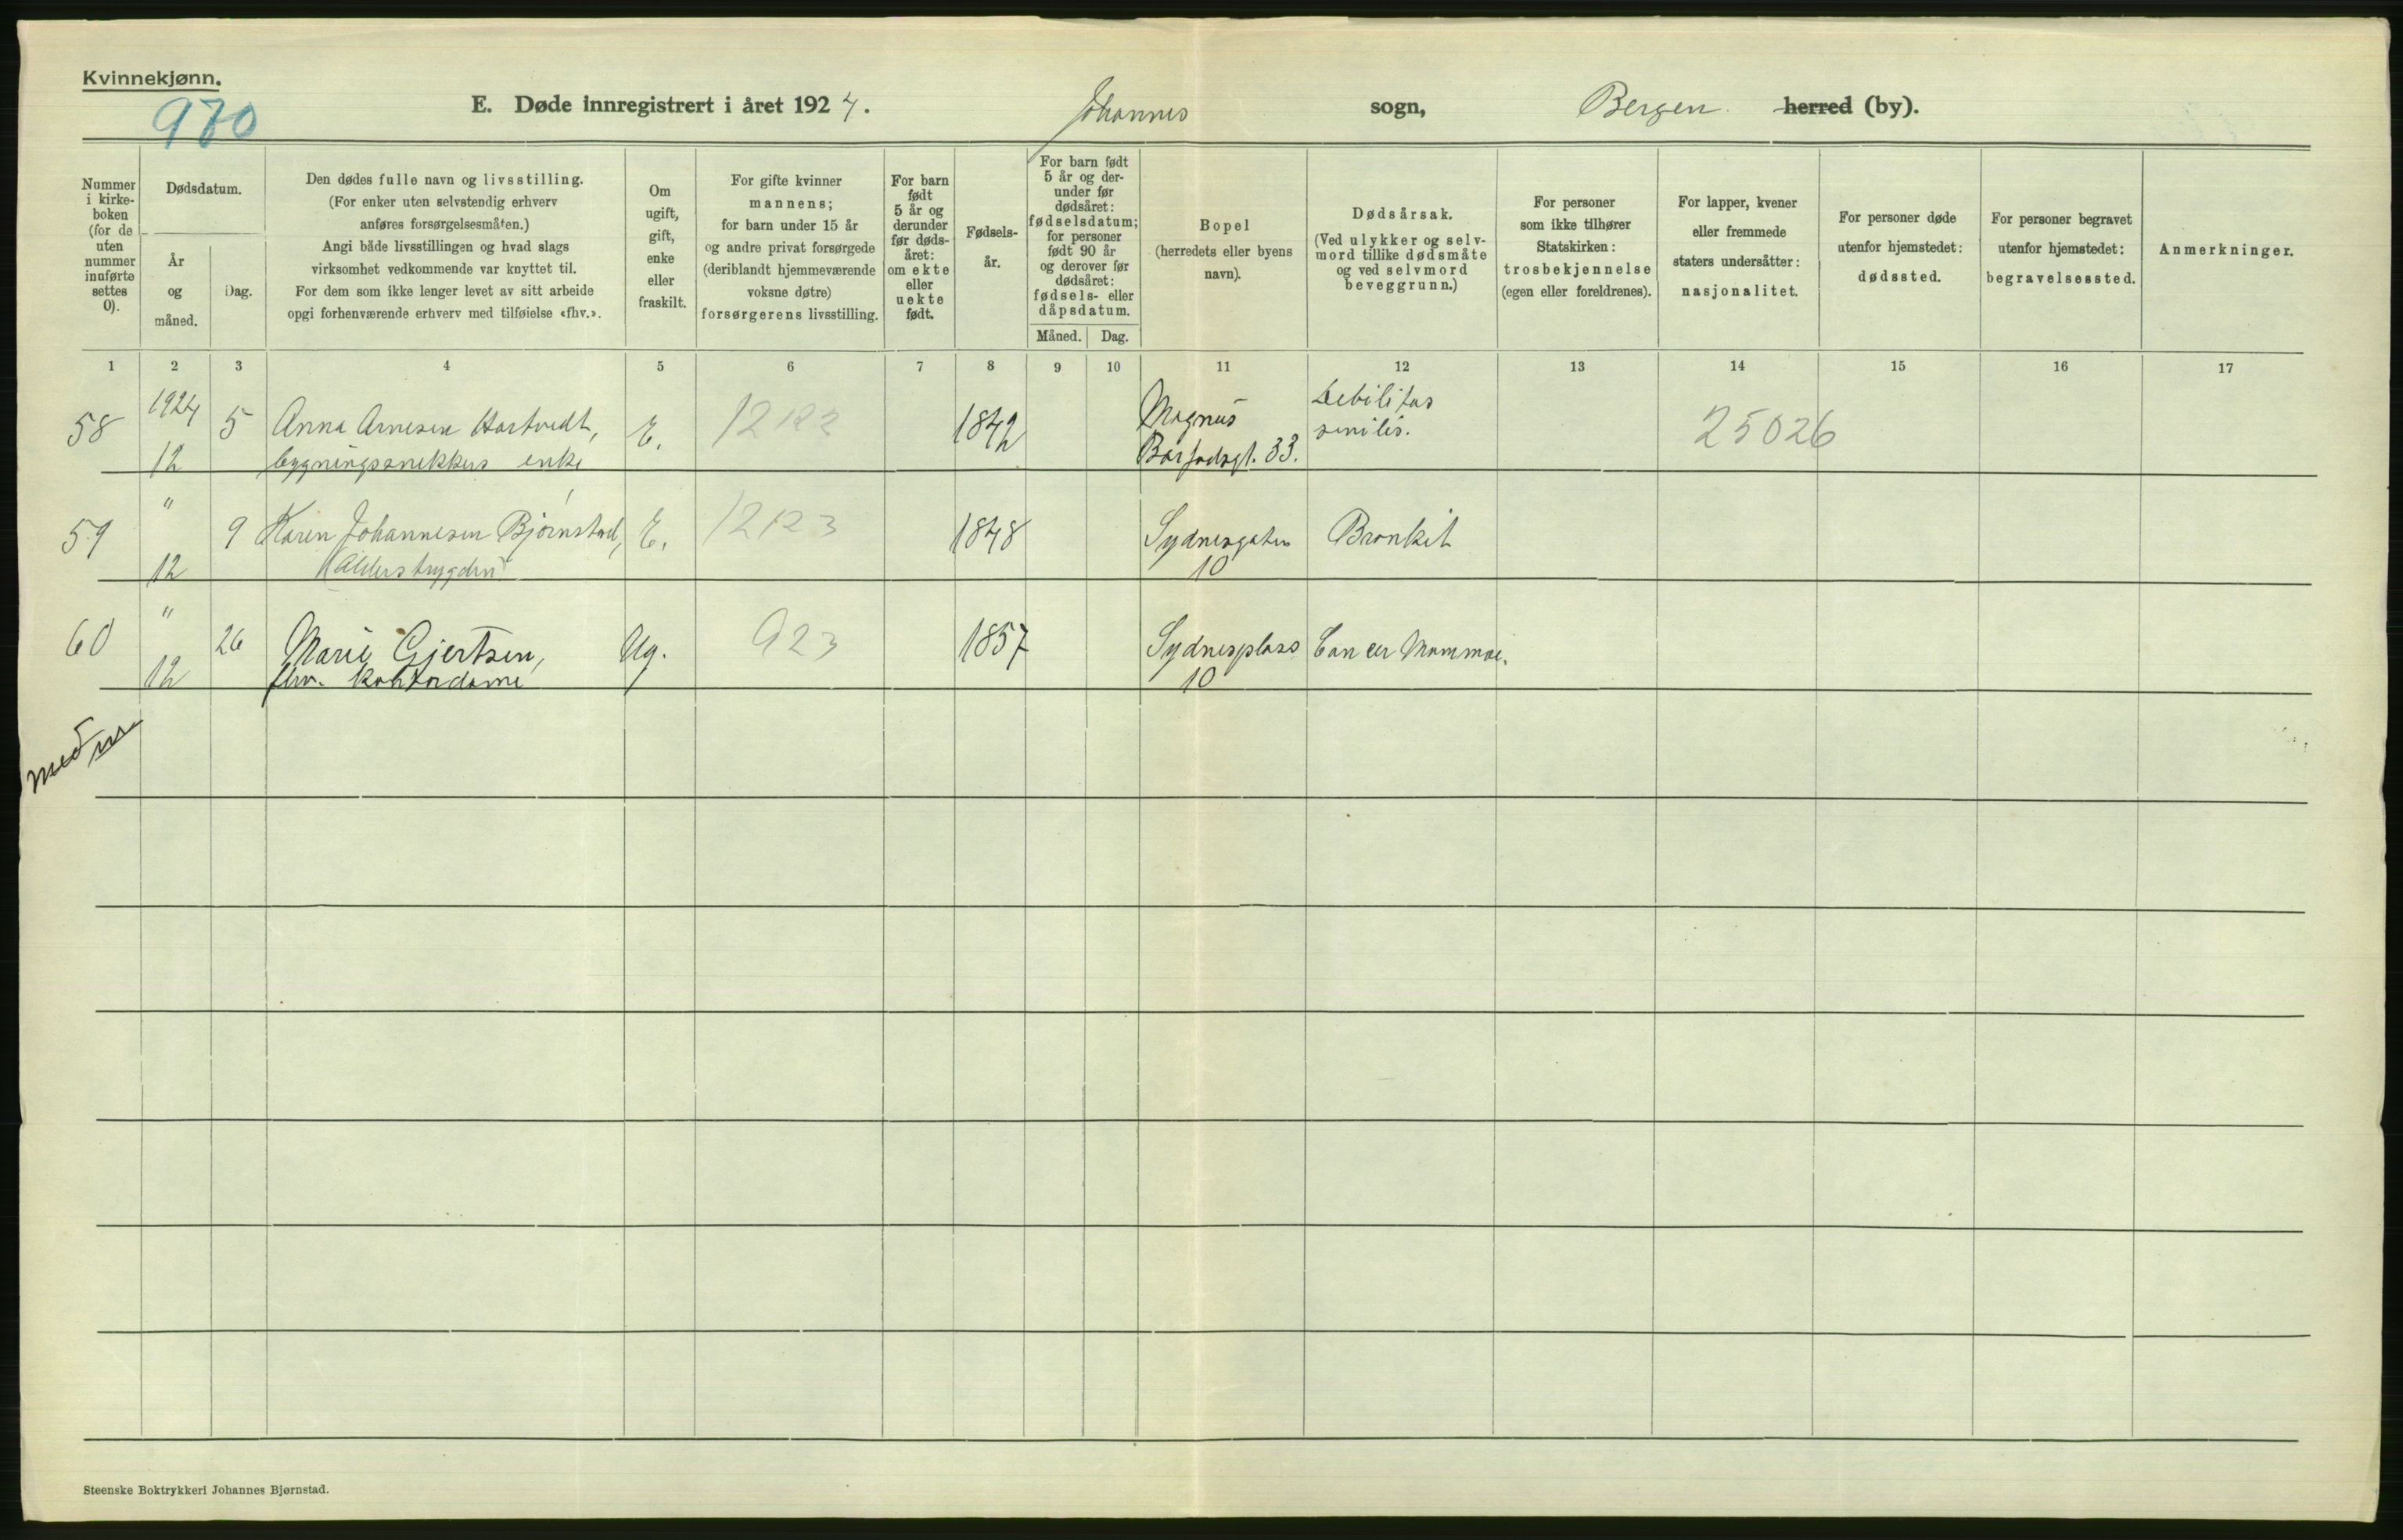 Kvinnekjønn.
970
E. Døde innregistrert i året 1924. Johannes sogn, Bergen herred (by).
Nummer
i kirke-
boken
(for de
uten
nummer
innførte
settes
0).
Dødsdatum.
År
og
måned.
Dag.
Den dødes fulle navn og livsstilling.
(For enker uten selvstendig erhverv
anføres forsørgelsesmåten.)
Angi både livsstillingen og hvad slags
virksomhet vedkommende var knyttet til.
For dem som ikke lenger levet av sitt arbeide
opgi forhenværende erhverv med tilføielse «fhv.».
Om
ugift,
gift,
enke
eller
fraskilt.
For gifte kvinner
mannens;
for barn under 15 år
og andre privat forsørgede
(deriblandt hjemmeværende
voksne døtre)
forsørgerens livsstilling.
For barn
født
5 år og
derunder
før døds-
året:
om ekte
eller
uekte
født.
Fødsels-
år.
For barn født
5 år og der-
under før
dødsåret:
fødselsdatum;
for personer
født 90 år
og derover før
dødsåret:
fødsels- eller
dåpsdatum.
Måned. Dag.
Bopel
(herredets eller byens
navn).
Dødsårsak.
(Ved ulykker og selv-
mord tillike dødsmåte
og ved selvmord
beveggrunn.)
For personer
som ikke tilhører
Statskirken:
trosbekjennelse
(egen eller foreldrenes).
For lapper, kvener
eller fremmede
staters undersåtter:
nasjonalitet.
For personer døde
utenfor hjemstedet:
dødssted.
For personer begravet
utenfor hjemstedet:
begravelsessted.
Anmerkninger.
1 2 3 4 5 6 7 8 9 10 11 12 13 14 15 16 17
1924 Magnus Debilitas
58 5 Anna Arnesen Hartvedt, E. 1842 senilis. 25026
12 bygningssnekkers enke Barfodsgt. 33.
"
59 9 Karen Johannesen Bjørnstad, E. 12123 1848 Sydnesgaten Bronkit
12 (Alderstrygden) 10
"
60 26 Marie Gjertsen, Ug. 923 1857 Sydnesplass Cancer Mammae.
12 fhv. kontordame 10
Steenske Boktrykkeri Johannes Bjørnstad.